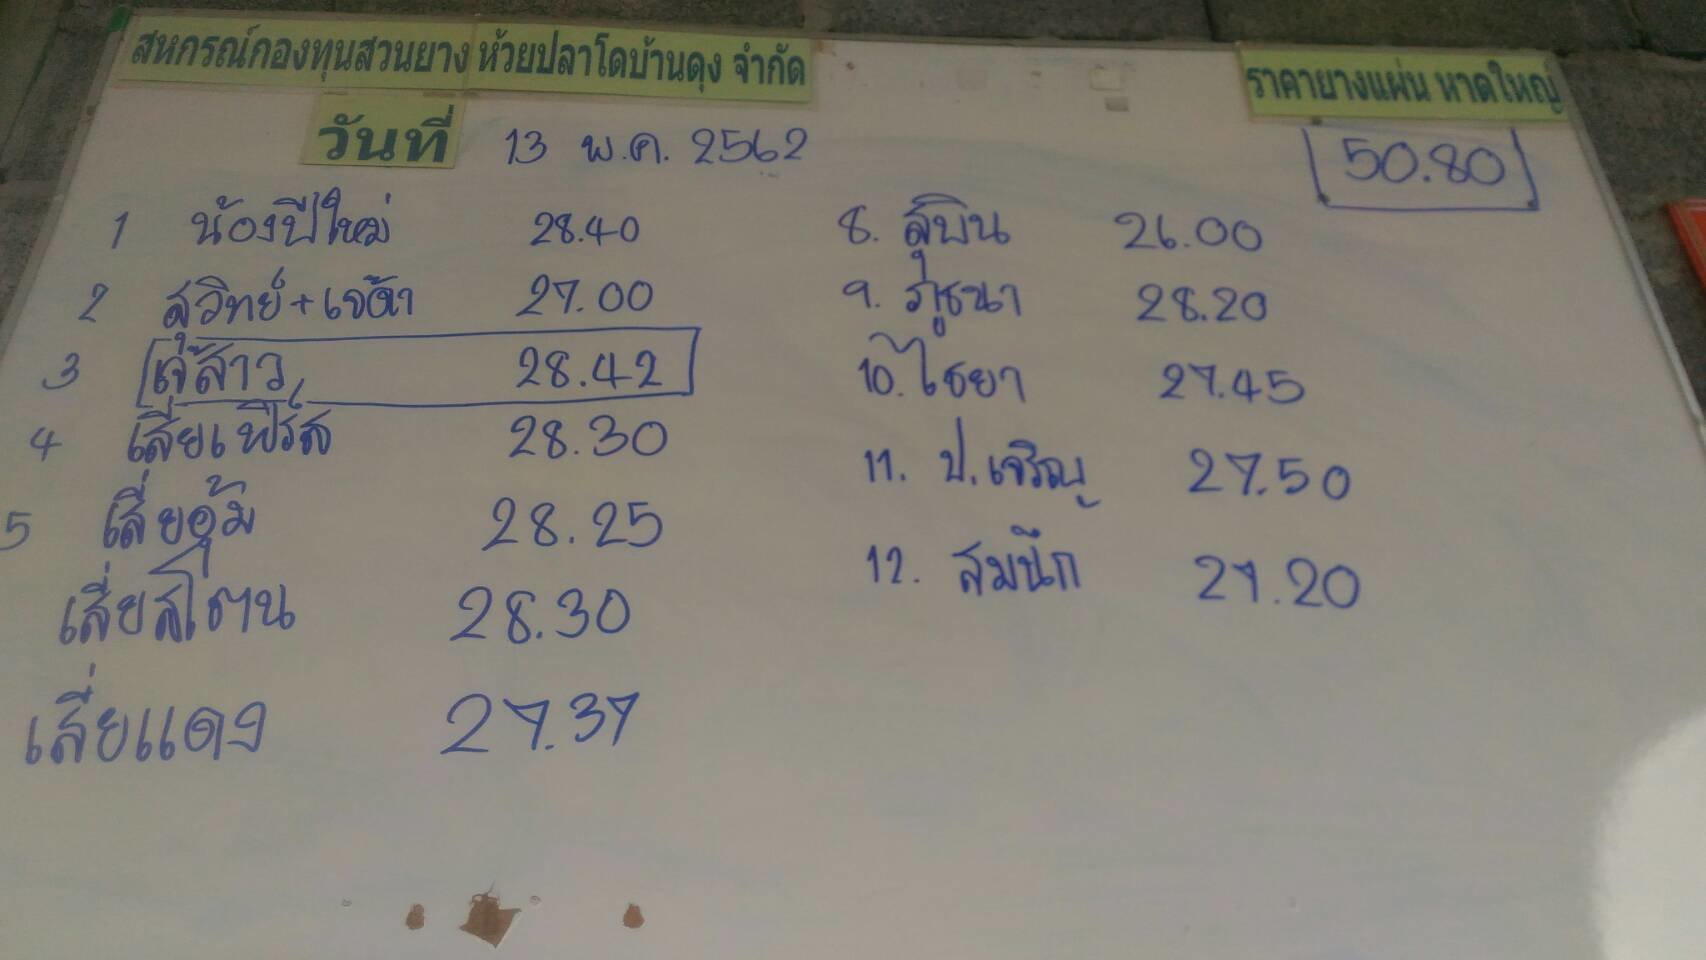 สหกรณ์กองทุนสวนยาง ห้วยปลาโดบ้านดุง จำกัด
ราคายางแผ่น หาดใหญ่
วันที่ 13 พ.ค. 2562
50.80
1 น้องปีใหม่ 28.40
2 สุวิทย์+เจ๊ดำ 27.00
3 เจ๊สาว 28.42
4 เสี่ยเฟิร์ส 28.30
5 เสี่ยอุ้ม 28.25
เสี่ยสโตน 28.30
เสี่ยแดง 27.37
8. สุบิน 26.00
9. 28.20
10. ไชยา 27.45
11. ป.เจริญ 27.50
12. สมนึก 27.20